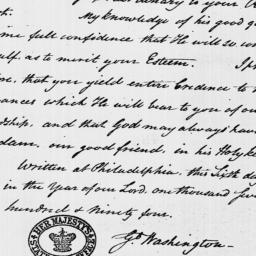 dinary to your
My knowledge of his good
me full confidence that He will so con
self, as to merit your Esteem.
fore, that you yield entire Credence to
ances which He will bear to you of our
dship, and that God may always have
dam, our good friend, in his Holy ke
Written at Philadelphia, this Sixth da
in the Year of our Lord, one thousand Sev
hundred & Ninety four.
HER MAJESTY'S
Go Washington